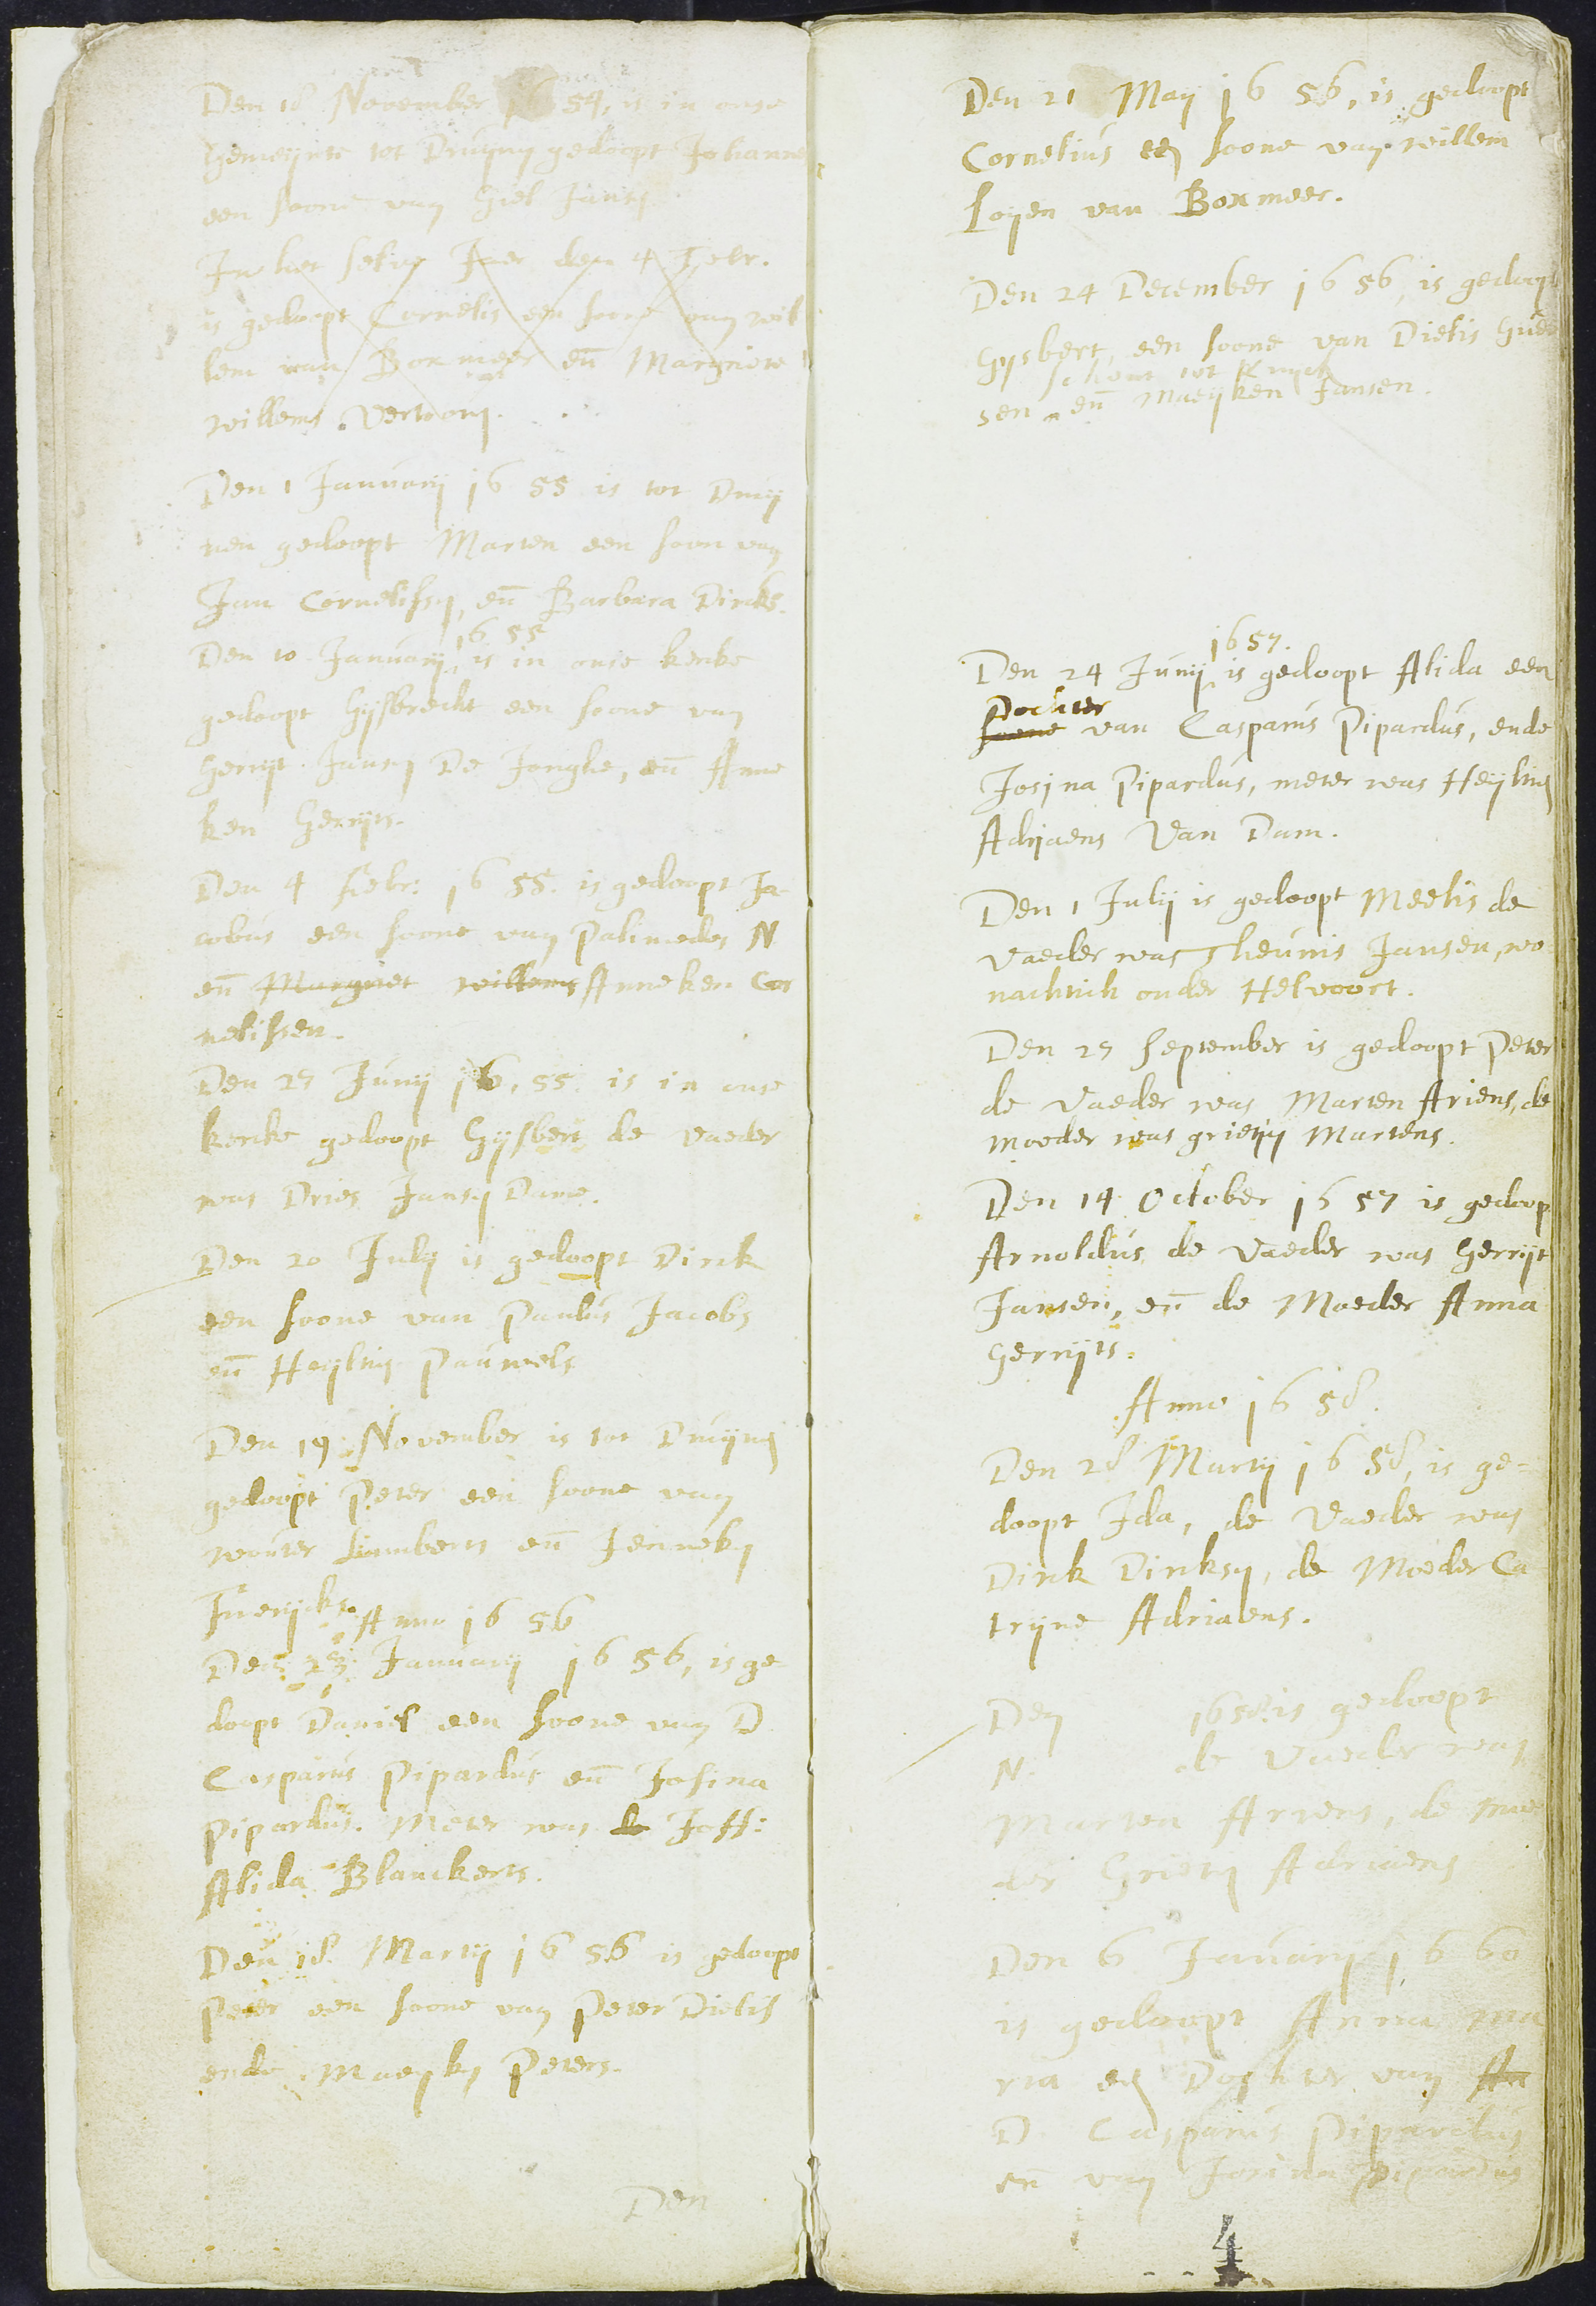 Den 18 November 1654, is in onse
Gemeijnte tot Druijnen gedoopt Johannes
een soone van Giel Jansen
In het selve Jaer den 4 Febr.
is gedoopt Cornelis een soone van wil
lem van Boxmeer en̄ Margriete
willems Vertoorn.
Den 1 Januarij 1655 is tot Druij
nen gedoopt Marten een soon van
Jan Cornelissen, en̄ Barbara Dircks.
1655
Den 10 Januarij is in onse kercke
gedoopt Gijsbrecht een soone van
Gerrijt Jansen De Jonghe, en̄ Anne
ken Gerrijts.
Den 4 Febr: 1655 is gedoopt Ja
cobus een soone van Palimedes N
en̄ Margriet willems Anneken Cor
nelissen.
Den 27 Junij 1655 is in onse
kercke gedoopt Gijsbert de vaeder
was Dries Jansen Dame.
Den 20 Julij is gedoopt Dirck
een soone van Paulus Jacobs
en̄ Heijltien Pauwels
Den 19 November is tot Druijnen
gedoopt Peter een soone van
wouter Lambers en̄ Jenneken
Anno 1656
Den 23 Januarij 1656, is ge
doopt Daniel een soone van D
Casparus Pipardus en̄ Josina
Pipardus. Meter was de Joff:
Alida Blanckerts.
Den 18 Martij 1656 is gedoopt
Peter een soone van Peter Dielis
ende Maeijken Peters.
Den
Den 21 Maij 1656, is gedoopt
Cornelius een soone van willem
Loijen van Boxmeer.
Den 24 December 1656, is gedoopt
Gijsbert, een soone van Dielis
schout tot
sen en̄ Maeijken Jansen.
1657.
Den 24 Junij is gedoopt Alida een
Dochter
soone van Casparus Pipardus, ende
Josina Pipardus, meter was Heijltien
Adriaens Van Dam.
Den 1 Julij is gedoopt Meelis de
Vaeder was Theunis Jansen, wo
nachtich onder Helvoort.
Den 25 September is gedoopt Peter
de Vaeder was Marten Ariens, de
moeder was grietien Martens.
Den 14 October 1657 is gedoop
Arnoldus de Vaeder was Gerrijt
Jansen, en̄ de Moeder Anna
Gerrijts.
Anno 1658.
Den 28 Martij 1658, is ge=
doopt Ida, de Vaeder was
Dirck Dircksen, de Moeder Ca
trijne Adriaens.
Den 1658 is gedoopt
N. de Vaeder was
Marten Ariens, de moe
der Grieten Adriaens
Den 6 Januarij 1660
is gedoopt Anna ma
ria een Dochter van
D. Casparus Pipardus
en̄ van Josina Pipardus
4